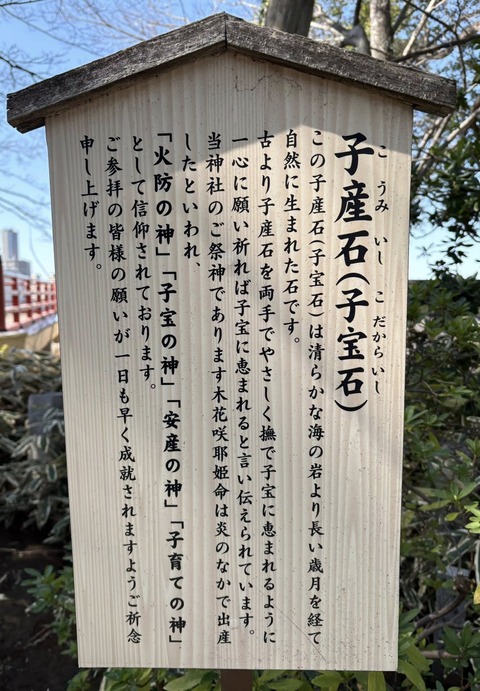 子産石(子宝石)
こうみいし こだからいし
この子産石(子宝石)は清らかな海の岩より長い歳月を経て
自然に生まれた石です。
古より子産石を両手でやさしく撫で子宝に恵まれるように
一心に願い祈れば子宝に恵まれると言い伝えられています。
当神社のご祭神であります木花咲耶姫命は炎のなかで出産
したといわれ、
「火防の神」「子宝の神」「安産の神」「子育ての神」
として信仰されております。
ご参拝の皆様の願いが一日も早く成就されますようご祈念
申し上げます。